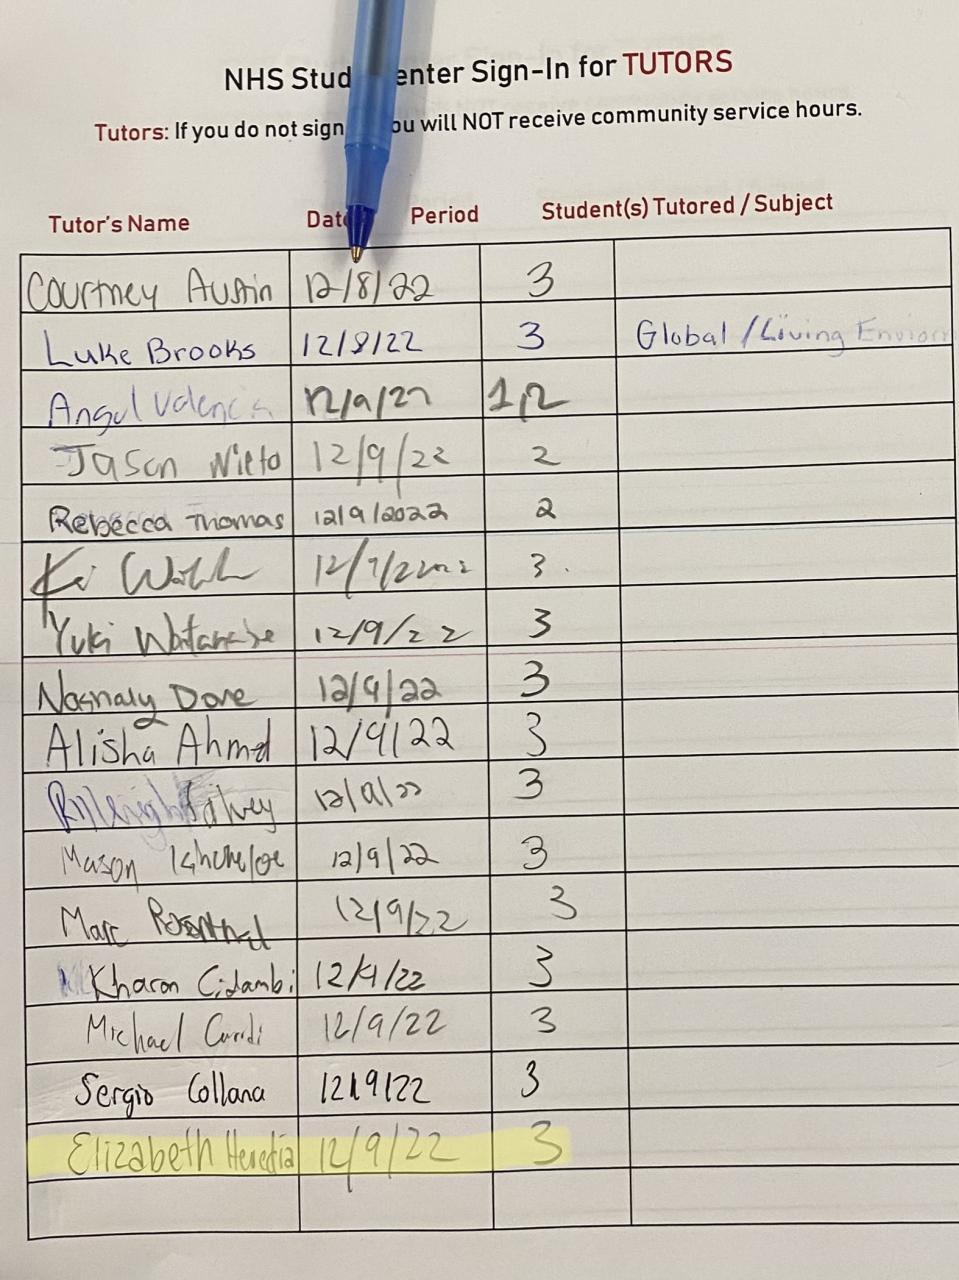 NHS Stud enter Sign-In for TUTORS
Tutors: If you do not sign ou will NOT receive community service hours.
Tutor's Name Dat Period Student(s) Tutored / Subject
Courtney Austin 12/8/22 3
Luke Brooks 12/8/22 3 Global / Living Environ
Angel Valencia 12/9/22 1,2
Jason Nieto 12/9/22 2
Rebecca Thomas 12/9/2022 2
3
Yuki Watanabe 12/9/22 3
Dore 12/9/22 3
Alisha Ahmed 12/9/22 3
12/9/22 3
Mason 12/9/22 3
Marc Rosenthal 12/9/22 3
Kharon Cidambi 12/9/22 3
Michael 12/9/22 3
Sergio Collana 12/9/22 3
Elizabeth Heredia 12/9/22 3